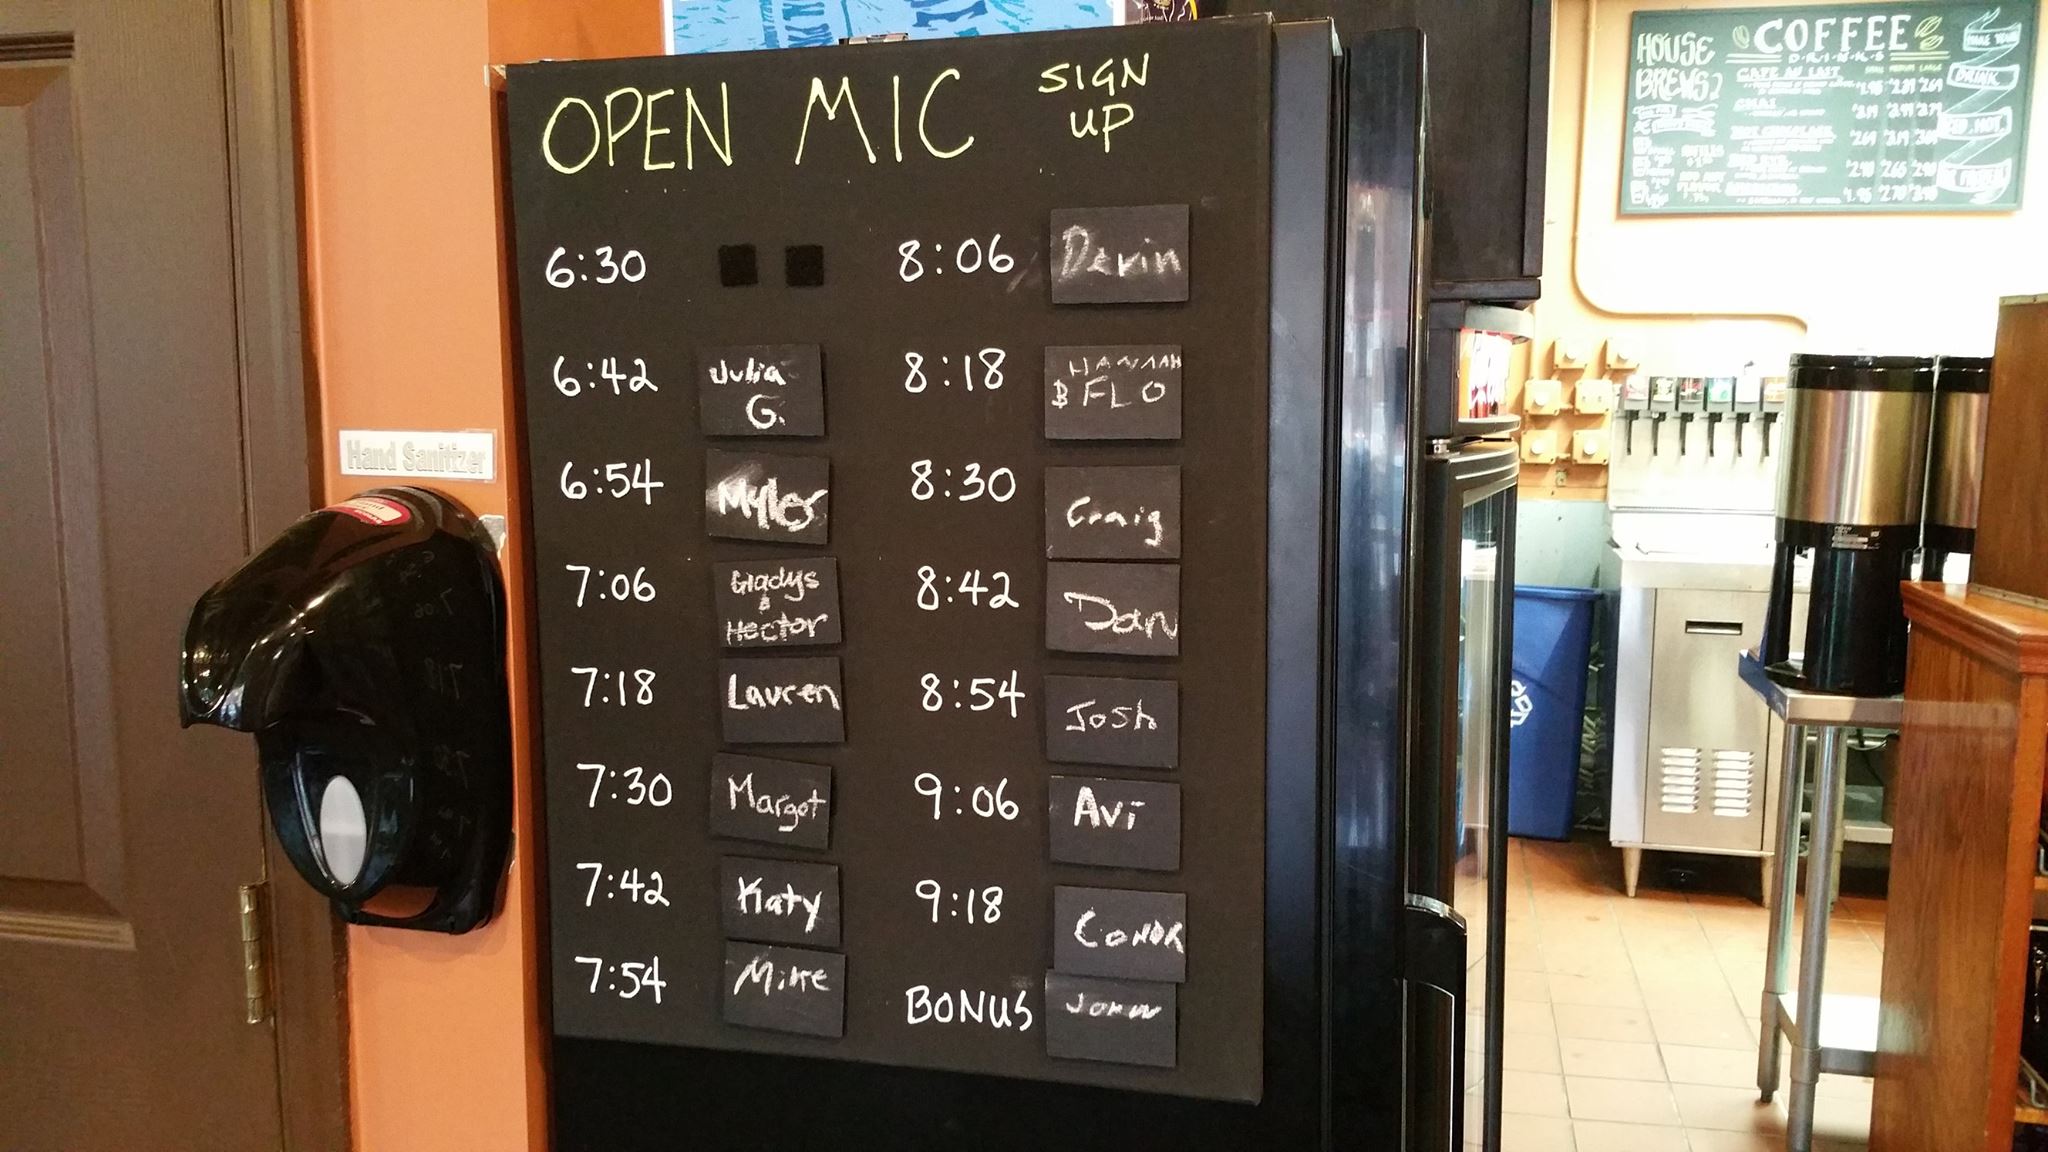 OPEN MIC SIGN
UP
6:30
6:42 Julia
G.
6:54 Myles
7:06 Gladys
&
Hector
7:18 Lauren
7:30 Margot
7:42 Katy
7:54 Mike
8:06 Devin
8:18 HANNAH
& FLO
8:30 Craig
8:42 Dan
8:54 Josh
9:06 Avi
9:18 CONOR
BONUS JOHN
Hand Sanitizer
HOUSE
BREWS
COFFEE
DRINKS
SMALL MEDIUM LARGE
CAFE AU LAIT
CHAI
HOT CHOCOLATE
RED EYE
AMERICANO
MAKE YOUR
DRINK